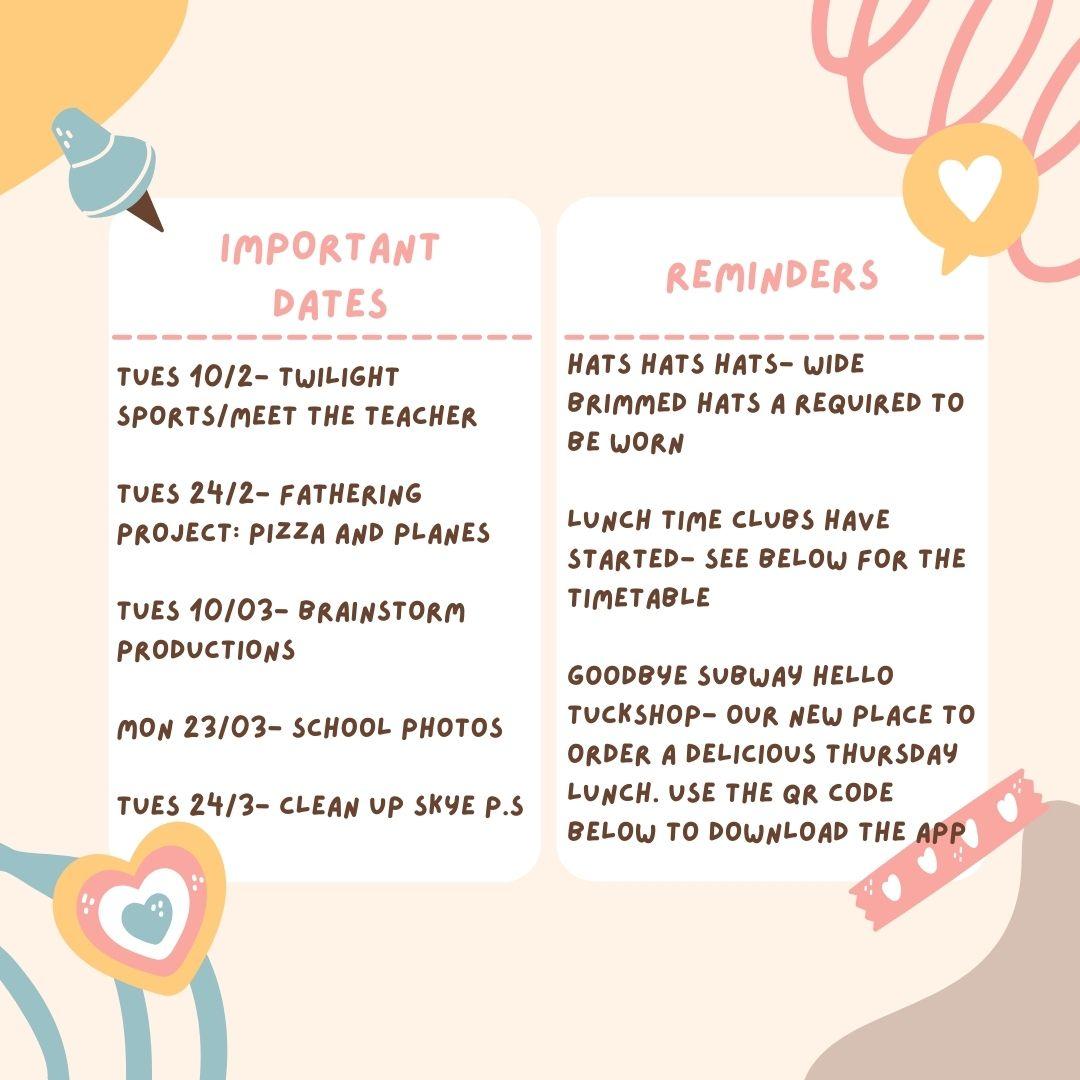 IMPORTANT
DATES
TUES 10/2- TWILIGHT
SPORTS/MEET THE TEACHER
TUES 24/2- FATHERING
PROJECT: PIZZA AND PLANES
TUES 10/03- BRAINSTORM
PRODUCTIONS
MON 23/03- SCHOOL PHOTOS
TUES 24/3- CLEAN UP SKYE P.S
REMINDERS
HATS HATS HATS- WIDE
BRIMMED HATS A REQUIRED TO
BE WORN
LUNCH TIME CLUBS HAVE
STARTED- SEE BELOW FOR THE
TIMETABLE
GOODBYE SUBWAY HELLO
TUCKSHOP- OUR NEW PLACE TO
ORDER A DELICIOUS THURSDAY
LUNCH. USE THE QR CODE
BELOW TO DOWNLOAD THE APP